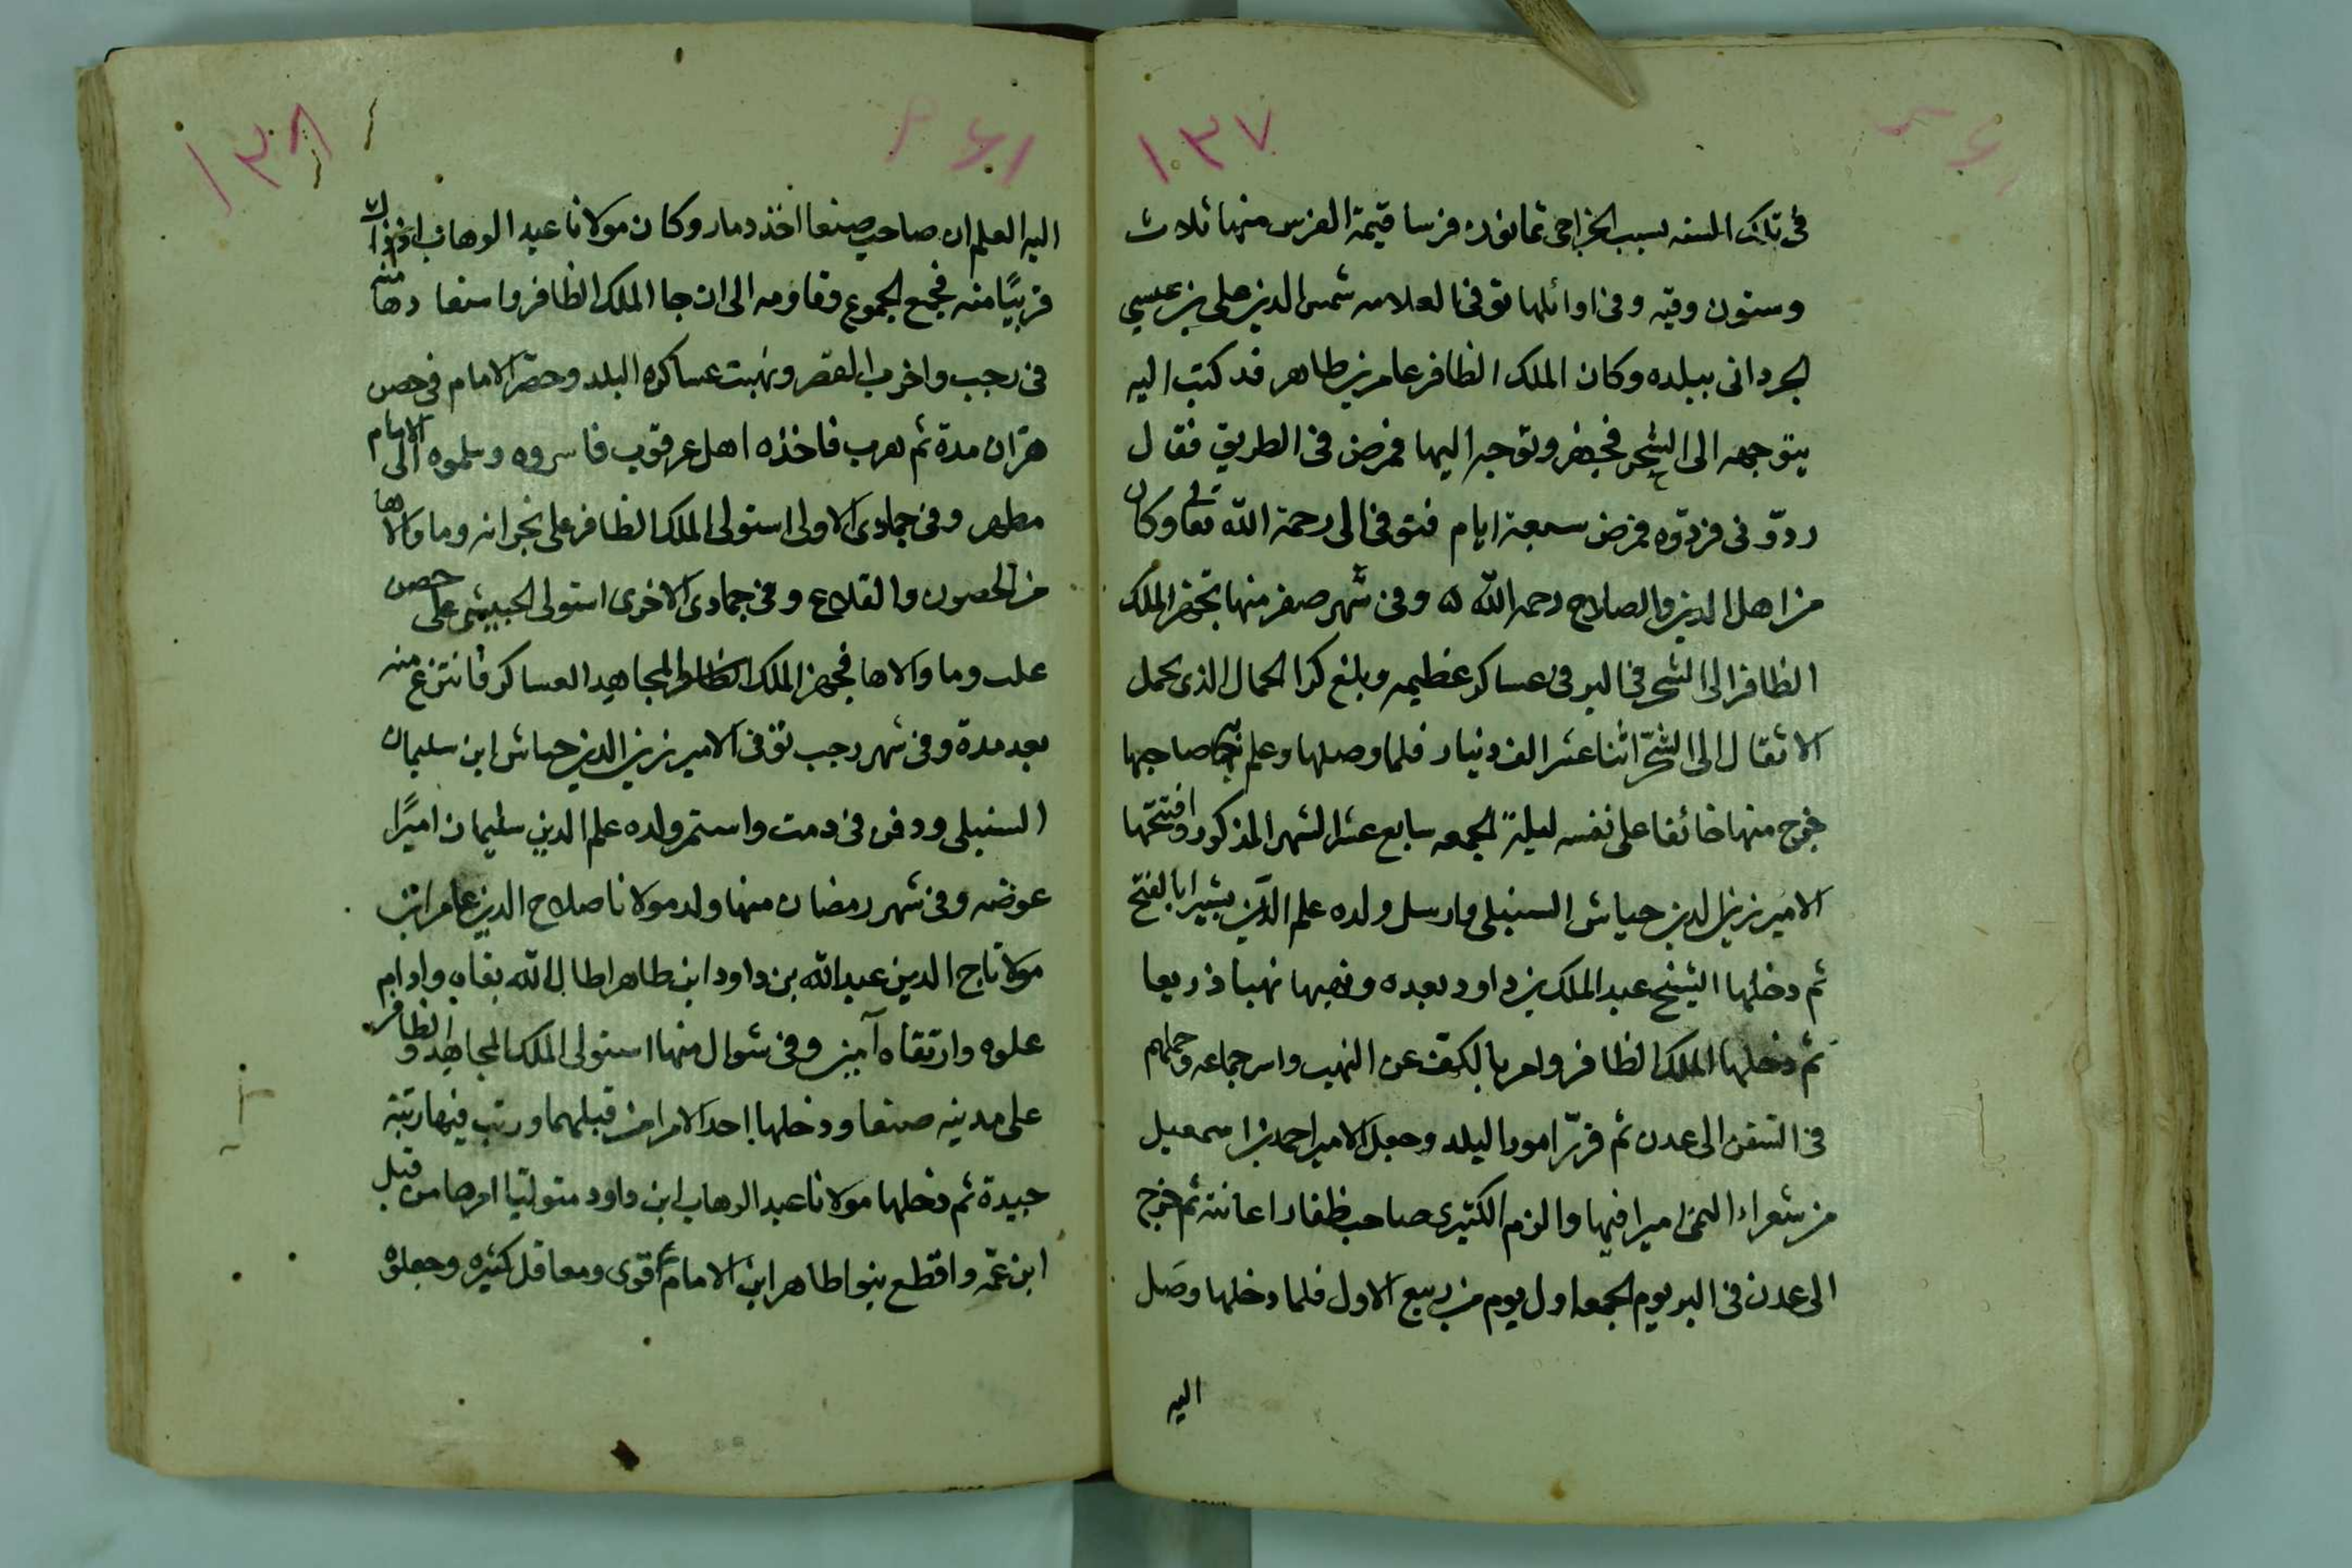 ١٣٧
في تلك السنه بسبب الخراجي ثمانون فرسا قيمة الفرس منها ثلاث
وستون وقيه وفي اوائلها توفي العلامه شمس الدين على بن عيسى
الجرداني ببلده وكان الملك الظافر عامر بن طاهر قد كتب اليه
يتوجهه الى الشحر فجهز وتوجه اليها فمرض في الطريق فقال
ردوني فردوه فمرض سبعة ايام فتوفى الى رحمة الله تعالى وكان
من اهل الدين والصلاح رحمه الله وفي شهر صفر منها تجهز الملك
الظافر الى الشحر في البر في عساكر عظيمه وبلغ كرا الجمال الذي يحمل
الاثقال الى الشحر اثنا عشر الف دينار فلما وصلها وعلم بهم صاحبها
خرج منها خائفا على نفسه ليلة الجمعه سابع عشر الشهر المذكور وافتتحها
الامير زين الدين جياش السنبلى وارسل ولده علم الدين بشيرا بالفتح
ثم دخلها الشيخ عبد الملك بن داود بعده ونهبها نهبا ذريعا
ثم دخلها الملك الظافر وامر بالكف عن النهب واسر جماعه وحملهم
في السفن الى عدن ثم قرر امور البلد وجعل الامير احمد بن اسمعيل
من شعراء اليمن اميرا فيها والزم الكثيرى صاحب ظفار اعانته ثم خرج
الى عدن في البر يوم الجمعه اول يوم من ربيع الاول فلما دخلها وصل
اليه
١٣٨
اليه العلم ان صاحب صنعا اخذ دمار وكان مولانا عبد الوهاب اذ ذاك
قريبًا منه فجمع الجموع وقاومه الى ان جا الملك الظافر واستعادها منه
في رجب واخرب القصر ونهبت عساكره البلد وحصر الامام في حصن
هران مدة ثم هرب فاخذه اهل عرقوب فاسروه وسلموه الى الامام
مطهر وفي جمادى الاولى استولى الملك الظافر على نجرانه وما والاها
من الحصون والقلاع وفي جمادى الاخرى استولى الحبيشى على حصن
علب وما والاها فجهز الملك المجاهد العساكر فانتزع منه
بعد مدة وفي شهر رجب توفى الامير زين الدين جياش ابن سليمان
السنبلى ودفن في دمت واستمر ولده علم الدين سليمان اميرًا
عوضه وفي شهر رمضان منها ولد مولانا صلاح الدين عامر ابن
مولانا تاج الدين عبد الله بن داود ابن طاهر اطال الله بقاه وادام
علوه وارتقاه آمين وفي شوال منها استولى الملك المجاهد والظافر
على مدينه صنعا ودخلها احد الامرا من قبلهما ورتب فيها رتبة
جيدة ثم دخلها مولانا عبد الوهاب ابن داود متوليا امرها من قبل
ابن عمه واقطع بنوا طاهر ابن الامام قوى ومعاقل كثيره وجعلوه